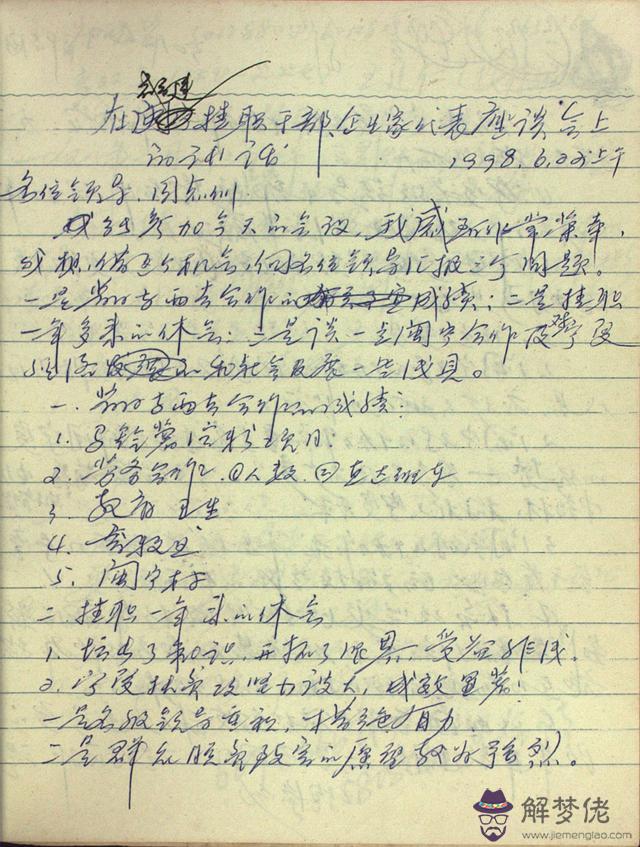 福建
在挂职干部、企业家代表座谈会上
的讲话 1998.6.22上午
各位领导、同志们
我能参加今天的会议，我感到非常荣幸，
我想借这个机会，向各位领导汇报三个问题。
一是劳务与两县合作的成绩；二是挂职
一年多来的体会；三是谈一点闽宁合作及对宁夏
经济和社会发展一些浅见。
一、劳务与两县合作的成绩：
1.
2.劳务合作、①人数、②直达班车
3、教育卫生
4.
5、闽宁村
二、挂职一年来的体会
1、增长了知识，开拓了眼界，受益非浅。
2.宁夏扶贫攻坚力度大，成效显著；
一是各级领导重视，措施有力
二是群众脱贫致富的愿望较为强烈。
解梦佬
www.jiemenglao.com